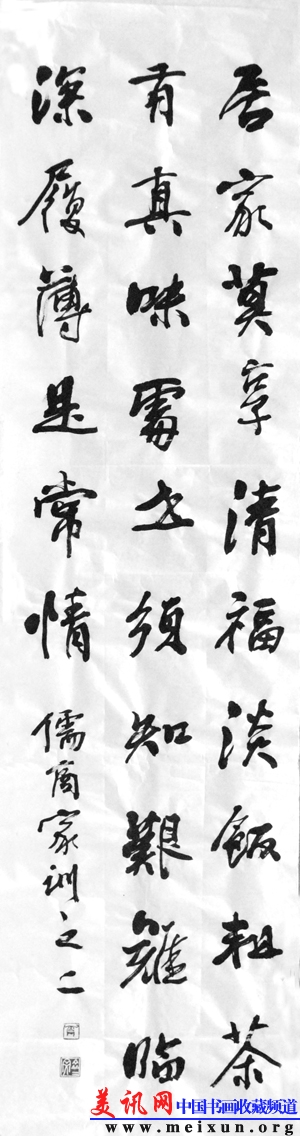 居家莫享清福淡飯粗茶
有真味處世須知艱難臨
深履薄是常情
儒商家训之二
美讯网 中国书画收藏频道
www.meixun.org